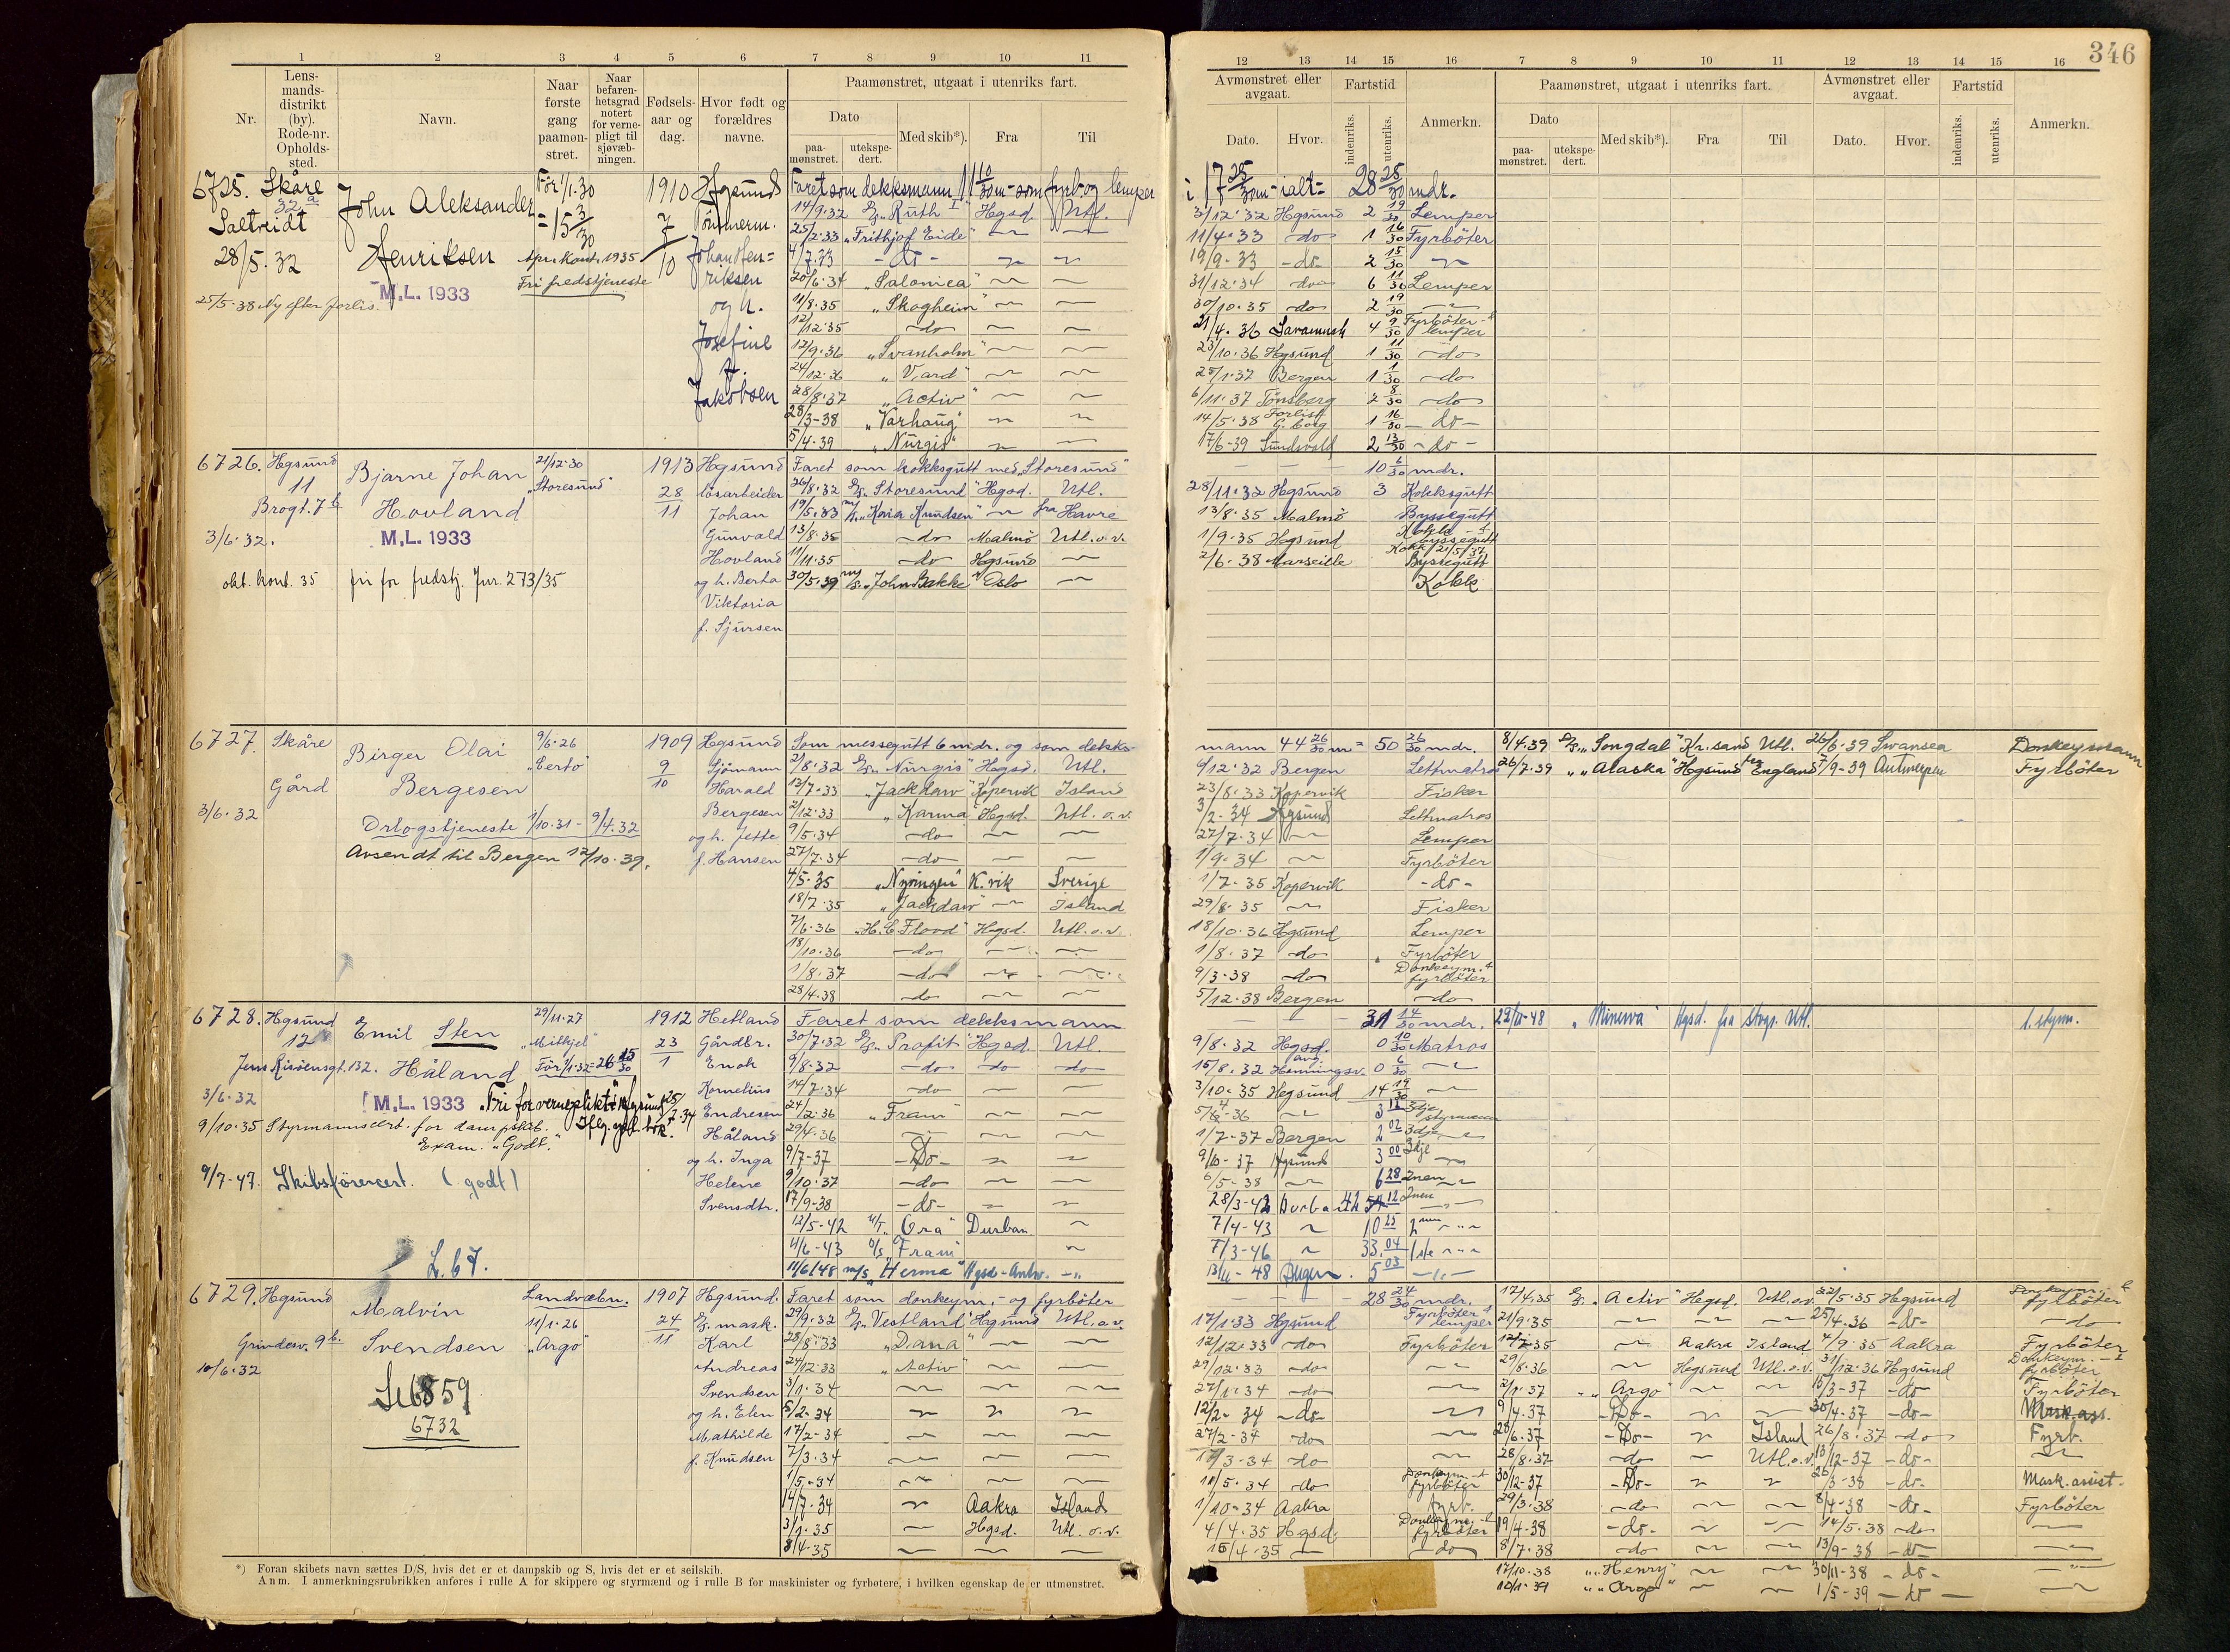 346
1 2 3 4 5 6 7 8 9 10 11
Nr.
Lens-mands-distrikt (by). Rode-nr. Opholds-sted.
Navn.
Naar første gang paamøn-stret.
Naar befaren-hetsgrad notert for verne-pligt til sjøvæb-ningen.
Fødsels-aar og dag.
Hvor født og forældres navne.
Paamønstret, utgaat i utenriks fart.
Dato
paa-mønstret.
utekspe-dert.
Med skib*).
Fra
Til
12 13 14 15 16 7 8 9 10 11 12 13 14 15 16
Avmønstret eller avgaat.
Dato.
Hvor.
Fartstid
indenriks.
utenriks.
Anmerkn.
Paamønstret, utgaat i utenriks fart.
Dato
paa-mønstret.
utekspe-dert.
Med skib*).
Fra
Til
Avmønstret eller avgaat.
Dato.
Hvor.
Fartstid
indenriks.
utenriks.
Anmerkn.
6725. Skåre
32a
Saltveidt
28/5.32
25/5.38 Ny efter forlis.
John Aleksander
Henriksen
M.L. 1933
Før 1/1.30
= 15 3/30
Apr. kont. 1935
Fri fredstjeneste
1910
7/10
Hgsund
Tömmerm.
Johan Hen=
riksen
og h.
Josefine
f.
Jakobsen
Faret som dekksmann 11 10/30 m - som fyrb og lemper
i 17 25/30 m - ialt = 28 25/30 mdr.
14/9.32 D/S "Ruth I" Hgsd. Utl. 3/12.32 Hgsund 2 19/30 Lemper
25/2.33 "Frithjof Eide" — — 11/4.33 do 1 16/30 Fyrböter
4/7.33 - do - — — 19/9.33 - do - 2 15/30 —
20/6.34 "Salonica" — — 31/12.34 do 6 11/30 Lemper
11/8.35 "Skogheim" — — 30/10.35 do 2 19/30 —
12/12.35 do — — 21/4.36 Savannah 4 9/30 Fyrböter & lemper
12/9.36 "Svanholm" — — 23/10.36 Hgsund 1 11/30 do
24/12.36 "Vard" — — 25/1.37 Bergen 1 1/30 do
28/8.37 "Activ" — — 6/11.37 Tönsberg 2 8/30 do
28/3-38 "Varhaug" — — 14/5.38 Forlist G.borg 1 16/30 - do -
5/4.39 "Nurgis" — — 17/6-39 Sundsvald 2 13/30 - do -
6726. Hgsund
11
Brogt. 7b
3/6.32.
okt. kont. 35 fri for fredstj. Jnr. 273/35
Bjarne Johan
Hovland
M.L. 1933
21/12.30
"Storesund"
1913
28/11
Hgsund
lösarbeider
Johan
Gunvald
Hovland
og h. Berta
Viktoria
f. Sjursen
Faret som kokksgutt med "Storesund" 10 6/30 mdr.
26/8.32 D/S "Storesund" Hgsd. Utl. 28/11.32 Hgsund 3 Kokksgutt
19/5.33 m/s "Karia Knudsen" — fra Havre 13/8.35 Malmö Byssegutt
13/8.35 do Malmö Utl. o.v. 1/9.35 Hgsund Kokk & byssegutt
11/11.35 do Hgsund — 2/6.38 Marseille Kokk 21/5/37 Byssegutt
30/5.39 m/s "John Bakke" Oslo — Kokk
6727. Skåre
Gård
3/6.32
Birger Olai
Bergesen
Orlogstjeneste 1/10.31 - 9/4.32
Avsendt til Bergen 12/10.39.
9/6.26
"Certo"
1909
9/10
Hgsund
Sjömann
Harald
Bergesen
og h. Jette
f. Hansen
Som messegutt 6 mdr. og som dekks-
mann 44 26/30 m = 50 26/30 mdr.
2/8.32 D/S "Nurgis" Hgsd. Utl. 9/12.32 Bergen Lettmatros
13/7.33 "Jackdaw" Kopervik Island 23/8.33 Kopervik Fisker
2/12.33 "Karma" Hgsd. Utl. o.v. 3/2-34 Hgsund Lettmatros
9/5.34 do — — 27/7.34 — Lemper
27/7.34 do — — 1/9.34 — Fyrböter
4/5.35 "Nyringen" K.vik Sverige 1/7.35 Kopervik - do -
18/7.35 "Jackdaw" — Island 29/8.35 — Fisker
7/6.36 "H.C. Flood" Hgsd. Utl. o.v. 18/10.36 Hgsund Lemper
18/10.36 do — — 1/8.37 do Fyrböter
1/8.37 do — — 9/3.38 do Donkeym. & fyrböter
28/4.38 do — — 5/12.38 Bergen do
8/4.39 D/S "Songdal" Kr.sand Utl. 26/6.39 Swansea Donkeymann
26/7.39 " "Alaska" Hgsund fra England 7/9-39 Antwerpen Fyrböter
6728. Hgsund
12
Jens Risöensgt. 132.
3/6.32
Emil Sten
Håland
M.L. 1933 Fri for verneplikt i Hgsund 25/7.34
9/10.35 Styrmannscert. for dampsk.
Exam. "Godt."
9/7-47. Skibsförercert. (godt)
L. 67.
29/11.27
"Milkjel"
Før 1/1.32 = 26 15/30
1912
23/1
Hetland
Gårdbr.
Enok
Kornelius
Endresen
Håland
og h. Inga
Helene
Svensdtr.
Faret som dekksmann 31 14/30 mdr.
30/7.32 D/S "Profit" Hgsd. Utl. 9/8.32 Hgsd. 0 10/30 Matros
9/8.32 do do do 15/8.32 avg. Honningsv. 0 6/30 —
14/7.34 do — — 3/10.35 Hgsund 14 19/30 —
24/2.36 "Fram" — — -36 — 3 12 3dje styrmann
29/4.36 — — — 1/7-37 Bergen 2 02 3dje —
9/7-37 - Do - — — 9/10-37 Hgsund 3 00 3dje —
9/10.37 do — — 6/5-38 — 6 28 2nen —
17/9-38 - do - — — 28/3-42 Durban 42 12 2nen —
12/5-42 M/T "Ora" Durban — 7/4-43 — 10 25 2nen —
11/6-43 D/S "Fram" — 7/3-46 — 33.04 1ste —
11/6/48 m/s "Herma" Hgsd - Antw. — 13/11-48 5 03 —
29/11-48 "Minerva" Hgsd. fra Stvgr. Utl. 1. styrm.
6729. Hgsund
Grindesv. 9b.
10/6.32
Malvin
Svendsen
Se 6859
6732
Landvæbn.
11/1.26
"Argo"
1907
24/11
Hgsund.
D/S mask.
Karl
Andreas
Svendsen
og h. Elen
Mathilde
f. Knudsen
Faret som donkeym.- og fyrböter 28 24/30 mdr.
29/9.32 D/S "Vestland" Hgsund Utl. o.v. 17/1.33 Hgsund Fyrböter & lemper
28/8.33 "Dana" — — 12/12.33 do Fyrböter
24/12.33 "Activ" — — 29/12.33 do —
3/1.34 — — — 27/1.34 do —
5/2-34 — — — 12/2-34 - do - —
17/2-34 — — — 27/2-34 do —
7/3.34 — — — 3-34 do —
1/5-34 — — — 10/5.34 do Donkeym. & fyrböter
14/7.34 — Aakra Island 1/10-34 Aakra fyrb.
3/1.35 — Hgsd. Utl. o.v. 4/4.35 Hgsd. Donkeym. & fyrböter
8/4.35 — — — 15/4.35 — do
17/4.35 D/S "Activ" Hgsd. Utl. o.v. 22/5.35 Hgsund Donkeym. & fyrböter
21/9.35 — — — 25/4.36 - do - do
12/7.35 — Aakra Island 4/9.35 Aakra Fyrböter
29/8.36 — Hgsund Utl. o.v. 31/12.36 Hgsund Donkeym. & fyrböter
2/1.37 " "Argo" — — 15/3-37 do Fyrböter
9/4.37 - Do - — — 30/4-37 - do - Mask. ass.
28/6.37 - Do - — Island 26/8.37 do Fyrb.
28/8.37 do — Utl. o.v. 13/12-37 - do - —
30/12-37 - Do - — — 26/3-38 - do - Mask. assist.
29/3.38 do — — 8/4-38 - do - Fyrböter
19/4-38 - do - — — 14/5.38 do —
8/7.38 do — — 13/9-38 - do - —
17/10-38 " "Henry" — — 30/11-38 - do - —
10/1-39 " "Argo" — — 1/5-39 - do - —
*) Foran skibets navn sættes D/S, hvis det er et dampskib og S, hvis det er et seilskib.
Anm. I anmerkningsrubrikken anføres i rulle A for skippere og styrmænd og i rulle B for maskinister og fyrbøtere, i hvilken egenskap de er utmønstret.